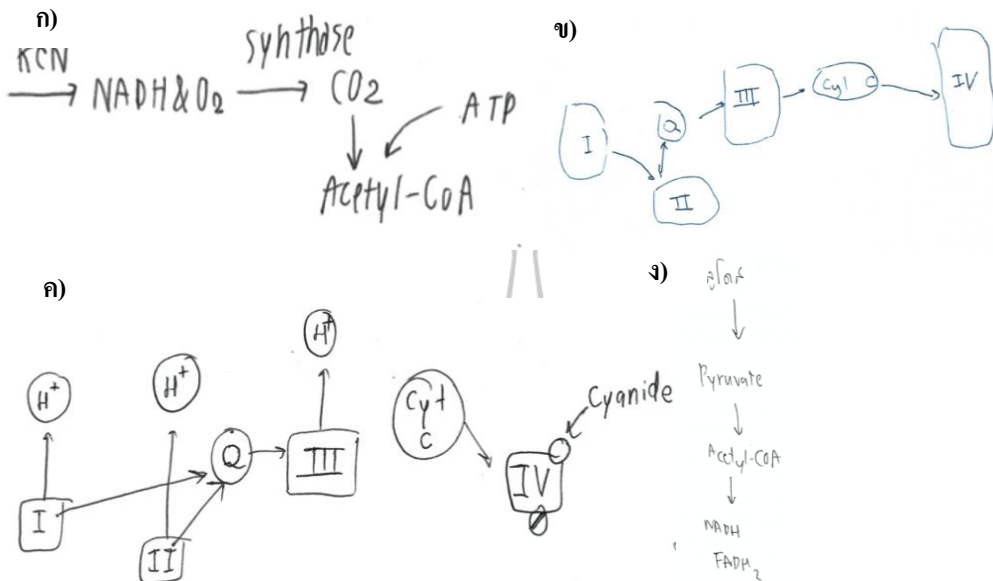 ก)
KCN
NADH&O₂
synthase
CO₂
ATP
Acetyl-CoA
ข)
I
Q
II
III
Cyt C
IV
ค)
H⁺
H⁺
H⁺
I
II
Q
III
Cyt
C
IV
Cyanide
ง)
Pyruvate
Acetyl-COA
NADH
FADH₂